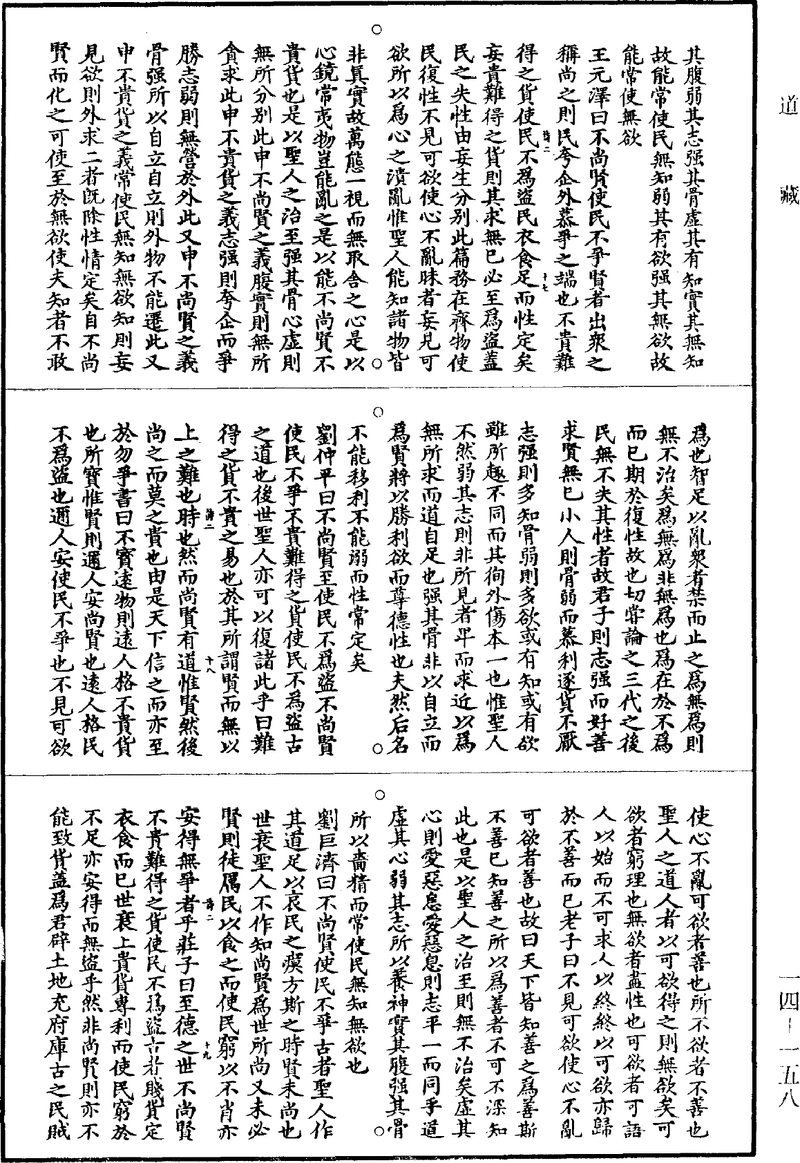 道藏
其腹弱其志强其骨虛其有知實其無知
故能常使民無知弱其有欲强其無欲故
能常使無欲
王元澤曰不尚賢使民不爭賢者出衆之
稱尚之則民夸企外慕爭之端也不貴難
得之貨使民不爲盜民衣食足而性定矣
妄貴難得之貨則其求無已必至爲盜蓋
民之失性由妄生分别此篇務在齊物使
民復性不見可欲使心不亂昧者妄見可
欲所以爲心之潰亂惟聖人能知諸物皆
非真實故萬態一視而無取舍之心是以
心鏡常夷物豈能亂之是以能不尚賢不
貴貨也是以聖人之治至强其骨心虛則
無所分别此申不尚賢之義腹實則無所
貪求此申不貴貨之義志强則夸企而爭
勝志弱則無營於外此又申不尚賢之義
骨强所以自立自立則外物不能遷此又
申不貴貨之義常使民無知無欲知則妄
見欲則外求二者旣除性情定矣自不尚
賢而化之可使至於無欲使夫知者不敢
爲也智足以亂衆者禁而止之爲無爲則
無不治矣爲無爲非無爲也爲在於不爲
而已期於復性故也切嘗論之三代之後
民無不失其性者故君子則志强而好善
求賢無已小人則骨弱而慕利逐貨不厭
志强則多知骨弱則多欲或有知或有欲
雖所趣不同而其徇外傷本一也惟聖人
不然弱其志則非所見者卑而求近以爲
無所求而道自足也强其骨非以自立而
爲賢將以勝利欲而尊德性也夫然后名
不能移利不能溺而性常定矣
劉仲平曰不尚賢至使民不爲盜不尚賢
使民不爭不貴難得之貨使民不爲盜古
之道也後世聖人亦可以復諸此乎曰難
得之貨不貴之易也於其所謂賢而無以
上之難也時也然而尚賢有道惟賢然後
尚之而莫之貴也由是天下信之而亦至
於勿爭書曰不寶遠物則遠人格不貴貨
也所寶惟賢則邇人安尚賢也遠人格民
不爲盜也邇人安使民不爭也不見可欲
使心不亂可欲者善也所不欲者不善也
聖人之道人者以可欲得之則無欲矣可
欲者窮理也無欲者盡性也可欲者可語
人以始而不可求人以終終以可欲亦歸
於不善而已老子曰不見可欲使心不亂
可欲者善也故曰天下皆知善之爲善斯
不善已知善之所以爲善者不可不深知
此也是以聖人之治至則無不治矣虛其
心則愛惡息愛惡息則志平一而同乎道
虛其心弱其志所以養神實其腹强其骨
所以嗇精而常使民無知無欲也
劉巨濟曰不尚賢使民不爭古者聖人作
其道足以哀民之瘼方斯之時賢未尚也
世衰聖人不作知尚賢爲世所尚又未必
賢則徒厲民以食之而使民窮以不肖亦
安得無爭者乎莊子曰至德之世不尚賢
不貴難得之貨使民不爲盜古者賤貨定
衣食而已世衰上貴貨專利而使民窮於
不足亦安得而無盜乎然非尚賢則亦不
能致貨蓋爲君辟土地充府庫古之民賊
一四-一五八